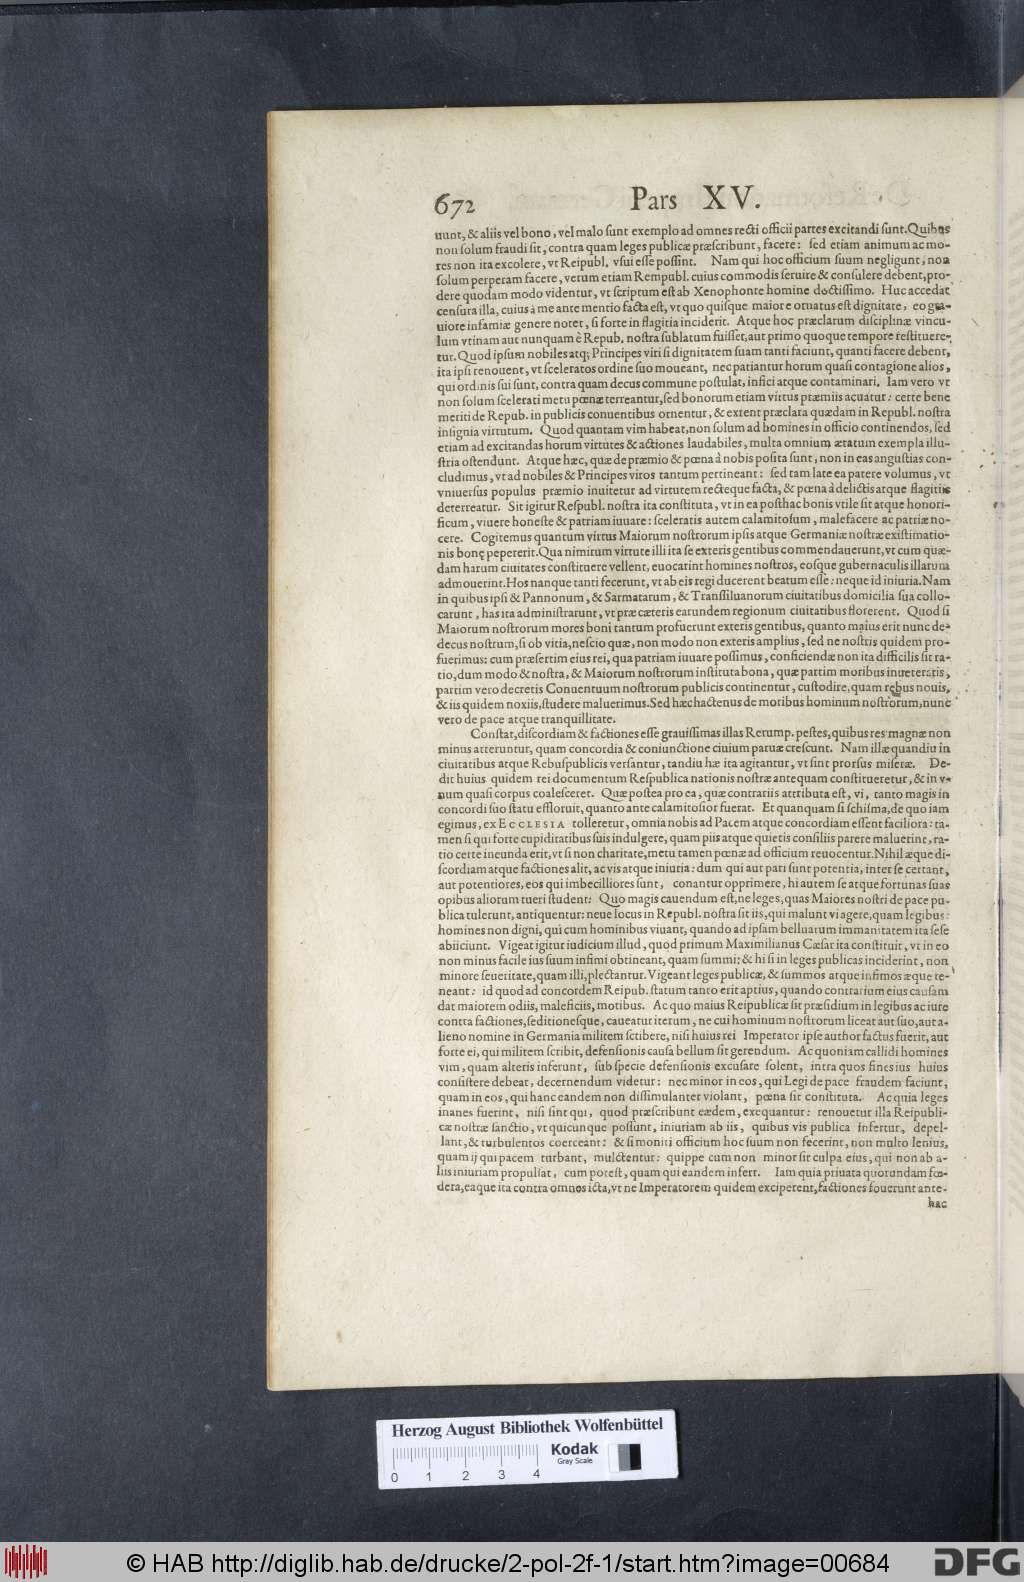 672 Pars XV.
nunt, & aliis vel bono, vel malo ſunt exemplo ad omnes recti officii partes excitandi ſunt. Quibus
non ſolum fraudi ſit, contra quam leges publicæ præſcribunt, facere: ſed etiam animum ac mo-
res non ita excolere, vt Reipubl. vſui eſſe poſſint. Nam qui hoc officium ſuum negligunt, non
ſolum perperam facere, verum etiam Rempubl. cuius commodis ſeruire & conſulere debent, pro-
dere quodam modo videntur, vt ſcriptum eſt ab Xenophonte homine doctiſſimo. Huc accedat
cenſura illa, cuius à me ante mentio facta eſt, vt quo quiſque maiore ornatus eſt dignitate, eo gra-
uiore infamiæ genere notet, ſi forte in flagitia inciderit. Atque hoc præclarum diſciplinæ vincu-
lum vtinam aut nunquam è Repub. noſtra ſublatum fuiſſet, aut primo quoque tempore reſtituere-
tur. Quod ipſum nobiles atq; Principes viri ſi dignitatem ſuam tanti faciunt, quanti facere debent,
ita ipſi renouent, vt ſceleratos ordine ſuo moueant, nec patiantur horum quaſi contagione alios,
qui ordinis ſui ſunt, contra quam decus commune poſtulat, infici atque contaminari. Iam vero vt
non ſolum ſcelerati metu pœnæ terreantur, ſed bonorum etiam virtus præmiis acuatur: certe bene
meriti de Repub. in publicis conuentibus ornentur, & extent præclara quædam in Republ. noſtra
inſignia virtutum. Quod quantam vim habeat, non ſolum ad homines in officio continendos, ſed
etiam ad excitandas horum virtutes & actiones laudabiles, multa omnium ætatum exempla illu-
ſtria oſtendunt. Atque hæc, quæ de præmio & pœna à nobis poſita ſunt, non in eas anguſtias con-
cludimus, vt ad nobiles & Principes viros tantum pertineant: ſed tam late ea patere volumus, vt
vniuerſus populus præmio inuitetur ad virtutem recteque facta, & pœna à delictis atque flagitiis
deterreatur. Sit igitur Reſpubl. noſtra ita conſtituta, vt in ea poſthac bonis vtile ſit atque honori-
ficum, viuere honeſte & patriam iuuare: ſceleratis autem calamitoſum, malefacere ac patriæ no-
cere. Cogitemus quantum virtus Maiorum noſtrorum ipſis atque Germaniæ noſtræ exiſtimatio-
nis bonę pepererit. Qua nimirum virtute illi ita ſe exteris gentibus commendauerunt, vt cum quæ-
dam harum ciuitates conſtituere vellent, euocarint homines noſtros, eoſque gubernaculis illarum
admouerint. Hos nanque tanti fecerunt, vt ab eis regi ducerent beatum eſſe: neque id iniuria. Nam
in quibus ipſi & Pannonum, & Sarmatarum, & Tranſſiluanorum ciuitatibus domicilia ſua collo-
carunt, has ita adminiſtrarunt, vt præ cæteris earundem regionum ciuitatibus florerent. Quod ſi
Maiorum noſtrorum mores boni tantum profuerunt exteris gentibus, quanto maius erit nunc de-
decus noſtrum, ſi ob vitia, neſcio quæ, non modo non exteris amplius, ſed ne noſtris quidem pro-
fuerimus: cum præſertim eius rei, qua patriam iuuare poſſimus, conficiendæ non ita difficilis ſit ra-
tio, dum modo & noſtra, & Maiorum noſtrorum inſtituta bona, quæ partim moribus inueteratis,
partim vero decretis Conuentuum noſtrorum publicis continentur, cuſtodire, quam rebus nouis,
& iis quidem noxiis, ſtudere maluerimus. Sed hæc hactenus de moribus hominum noſtrorum, nunc
vero de pace atque tranquillitate.
Conſtat, diſcordiam & factiones eſſe grauiſſimas illas Rerump. peſtes, quibus res magnæ non
minus atteruntur, quam concordia & coniunctione ciuium paruæ creſcunt. Nam illæ quandiu in
ciuitatibus atque Rebuſpublicis verſantur, tandiu hæ ita agitantur, vt ſint prorſus miſeræ. De-
dit huius quidem rei documentum Reſpublica nationis noſtræ antequam conſtitueretur, & in v-
num quaſi corpus coaleſceret. Quæ poſtea pro ea, quæ contrariis attributa eſt, vi, tanto magis in
concordi ſuo ſtatu effloruit, quanto ante calamitoſior fuerat. Et quanquam ſi ſchiſma, de quo iam
egimus, ex ECCLESIA tolleretur, omnia nobis ad Pacem atque concordiam eſſent faciliora: ta-
men ſi qui forte cupiditatibus ſuis indulgere, quam piis atque quietis conſiliis parere maluerint, ra-
tio certe ineunda erit, vt ſi non charitate, metu tamen pœnæ ad officium reuocentur. Nihil æque di-
ſcordiam atque factiones alit, ac vis atque iniuria: dum qui aut pari ſunt potentia, inter ſe certant,
aut potentiores, eos qui imbecilliores ſunt, conantur opprimere, hi autem ſe atque fortunas ſuas
opibus aliorum tueri ſtudent: Quo magis cauendum eſt, ne leges, quas Maiores noſtri de pace pu-
blica tulerunt, antiquentur: neue locus in Republ. noſtra ſit iis, qui malunt vi agere, quam legibus:
homines non digni, qui cum hominibus viuant, quando ad ipſam belluarum immanitatem ita ſeſe
abiiciunt. Vigeat igitur iudicium illud, quod primum Maximilianus Cæſar ita conſtituit, vt in eo
non minus facile ius ſuum infimi obtineant, quam ſummi: & hi ſi in leges publicas inciderint, non
minore ſeueritate, quam illi, plectantur. Vigeant leges publicæ, & ſummos atque infimos æque te-
neant: id quod ad concordem Reipub. ſtatum tanto erit aptius, quando contrarium eius cauſam
dat maiorem odiis, maleficiis, motibus. Ac quo maius Reipublicæ ſit præſidium in legibus ac iure
contra factiones, ſeditioneſque, caueatur iterum, ne cui hominum noſtrorum liceat aut ſuo, aut a-
lieno nomine in Germania militem ſcribere, niſi huius rei Imperator ipſe author factus fuerit, aut
forte ei, qui militem ſcribit, defenſionis cauſa bellum ſit gerendum. Ac quoniam callidi homines
vim, quam alteris inferunt, ſub ſpecie defenſionis excuſare ſolent, intra quos fines ius huius
conſiſtere debeat, decernendum videtur: nec minor in eos, qui Legi de pace fraudem faciunt,
quam in eos, qui hanc eandem non diſſimulanter violant, pœna ſit conſtituta. Ac quia leges
inanes fuerint, niſi ſint qui, quod præſcribunt eædem, exequantur: renouetur illa Reipubli-
cæ noſtræ ſanctio, vt quicunque poſſunt, iniuriam ab iis, quibus vis publica infertur, depel-
lant, & turbulentos coerceant: & ſi moniti officium hoc ſuum non fecerint, non multo lenius,
quam ij qui pacem turbant, mulctentur: quippe cum non minor ſit culpa eius, qui non ab a-
liis iniuriam propulſat, cum poteſt, quam qui eandem infert. Iam quia priuata quorundam fœ-
dera, eaque ita contra omnes icta, vt ne Imperatorem quidem exciperent, factiones fouerunt ante-
hac
Herzog August Bibliothek Wolfenbüttel
0 1 2 3 4
Kodak
Gray Scale
© HAB http://diglib.hab.de/drucke/2-pol-2f-1/start.htm?image=00684
DFG